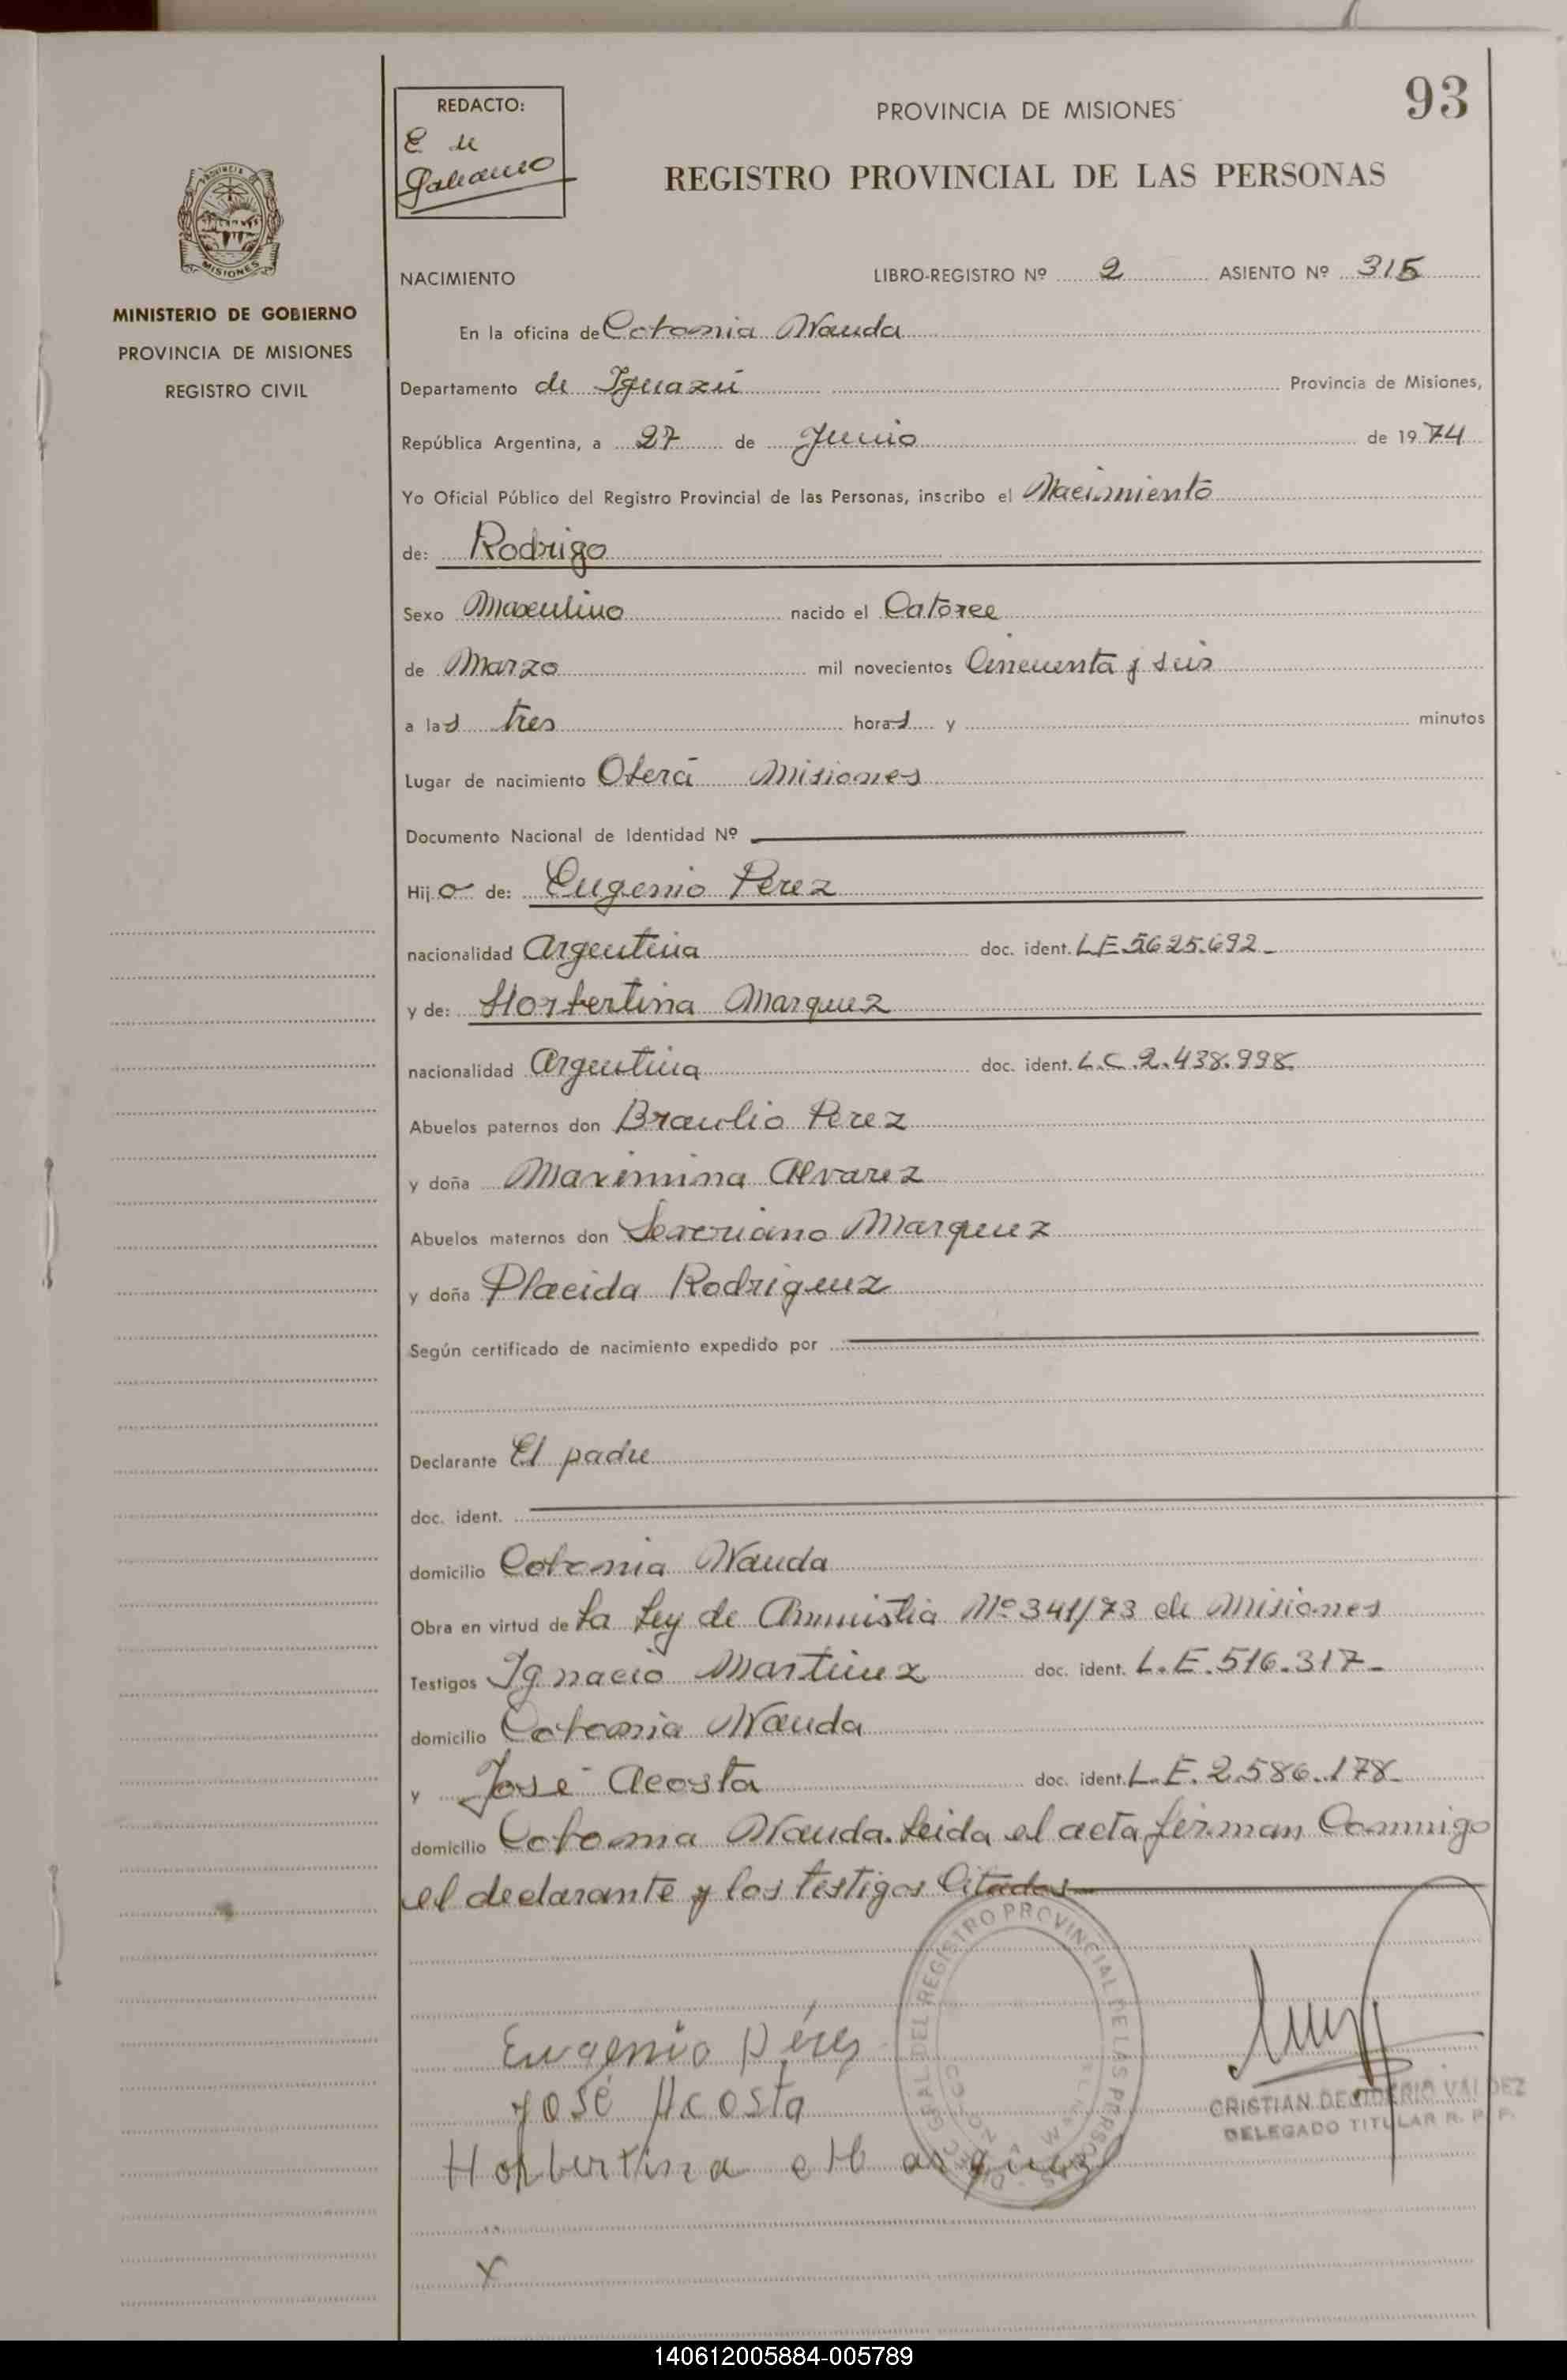 REDACTO:
E de
PROVINCIA DE MISIONES
93
REGISTRO PROVINCIAL DE LAS PERSONAS
PROVINCIA
MISIONES
MINISTERIO DE GOBIERNO
PROVINCIA DE MISIONES
REGISTRO CIVIL
NACIMIENTO LIBRO-REGISTRO Nº 2 ASIENTO Nº 315
En la oficina de Colonia Wanda
Departamento de Iguazú Provincia de Misiones,
República Argentina, a 27 de Junio de 1974
Yo Oficial Público del Registro Provincial de las Personas, inscribo el Nacimiento
de: Rodrigo
Sexo Masculino nacido el Catorce
de Marzo mil novecientos Cincuenta y seis
a las tres horas y minutos
Lugar de nacimiento Oberá Misiones
Documento Nacional de Identidad Nº
Hijo de: Eugenio Perez
nacionalidad Argentina doc. ident. L.E. 5625.692
y de: Horbertina Marquez
nacionalidad Argentina doc. ident. L.C. 2.438.998
Abuelos paternos don Braulio Perez
y doña Maximina Alvarez
Abuelos maternos don Severiano Marquez
y doña Placida Rodriguez
Según certificado de nacimiento expedido por
Declarante El padre
doc. ident.
domicilio Colonia Wanda
Obra en virtud de La Ley de Amnistia Nº 341/73 de Misiones
Testigos Ignacio Martinez doc. ident. L.E. 516.317
domicilio Colonia Wanda
y José Acosta doc. ident. L.E. 2.586.178
domicilio Colonia Wanda. Leida el acta firman Conmigo
el declarante y los testigos Citados
REGISTRO PROVINCIAL DE LAS PERSONAS
Eugenio Pérez
José Acosta
Horbertina Marquez
CRISTIAN DECIDERIO VALDEZ
DELEGADO TITULAR R. P. P.
X
140612005884-005789